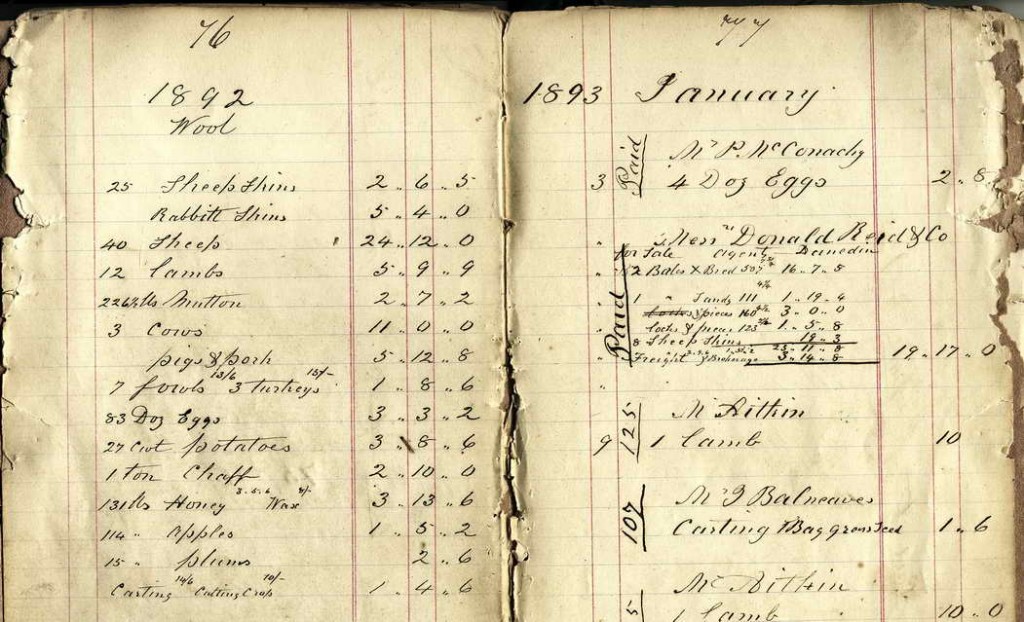 76
1892
Wool
25 Sheep Skins 2 .. 6 .. 5
Rabbitt Skins 5 .. 4 .. 0
40 Sheep 24 .. 12 .. 0
12 Lambs 5 .. 9 .. 9
226½ lbs Mutton 2 .. 7 .. 2
3 Cows 11 .. 0 .. 0
Pigs & Pork 5 .. 12 .. 8
13/6 15/-
7 fowls 3 turkeys 1 .. 8 .. 6
83 Doz Eggs 3 .. 3 .. 2
27 Cwt Potatoes 3 .. 8 .. 6
1 ton Chaff 2 .. 10 .. 0
3.5.6 8/-
131 lbs Honey Wax 3 .. 13 .. 6
114 .. Apples 1 .. 5 .. 2
15 .. Plums 2 .. 6
14/6 10/-
Carting Cutting Crop 1 .. 4 .. 6
77
1893 January
Paid
Mr P. McConachy
3 4 Doz Eggs 2 .. 8
Paid
.. Messrs Donald Reid & Co
for Sale agents Dunedin
2 Bales X Bred 507 16 .. 7 .. 5
1 .. Sandy 111 1 .. 19 .. 4
Locks & pieces 160 3 .. 0 .. 0
Locks & pieces 123 1 .. 5 .. 8
8 Sheep Skins 19 .. 3
23 .. 11 .. 8
Freight & Brokerage 3 .. 14 .. 8 19 .. 17 .. 0
125
Mc Aitkin
9 1 Lamb 10
107
Mr J Balneaves
Carting 7 Bag grass seed 1 .. 6
5
Mc Aitkin
1 Lamb 10 .. 0